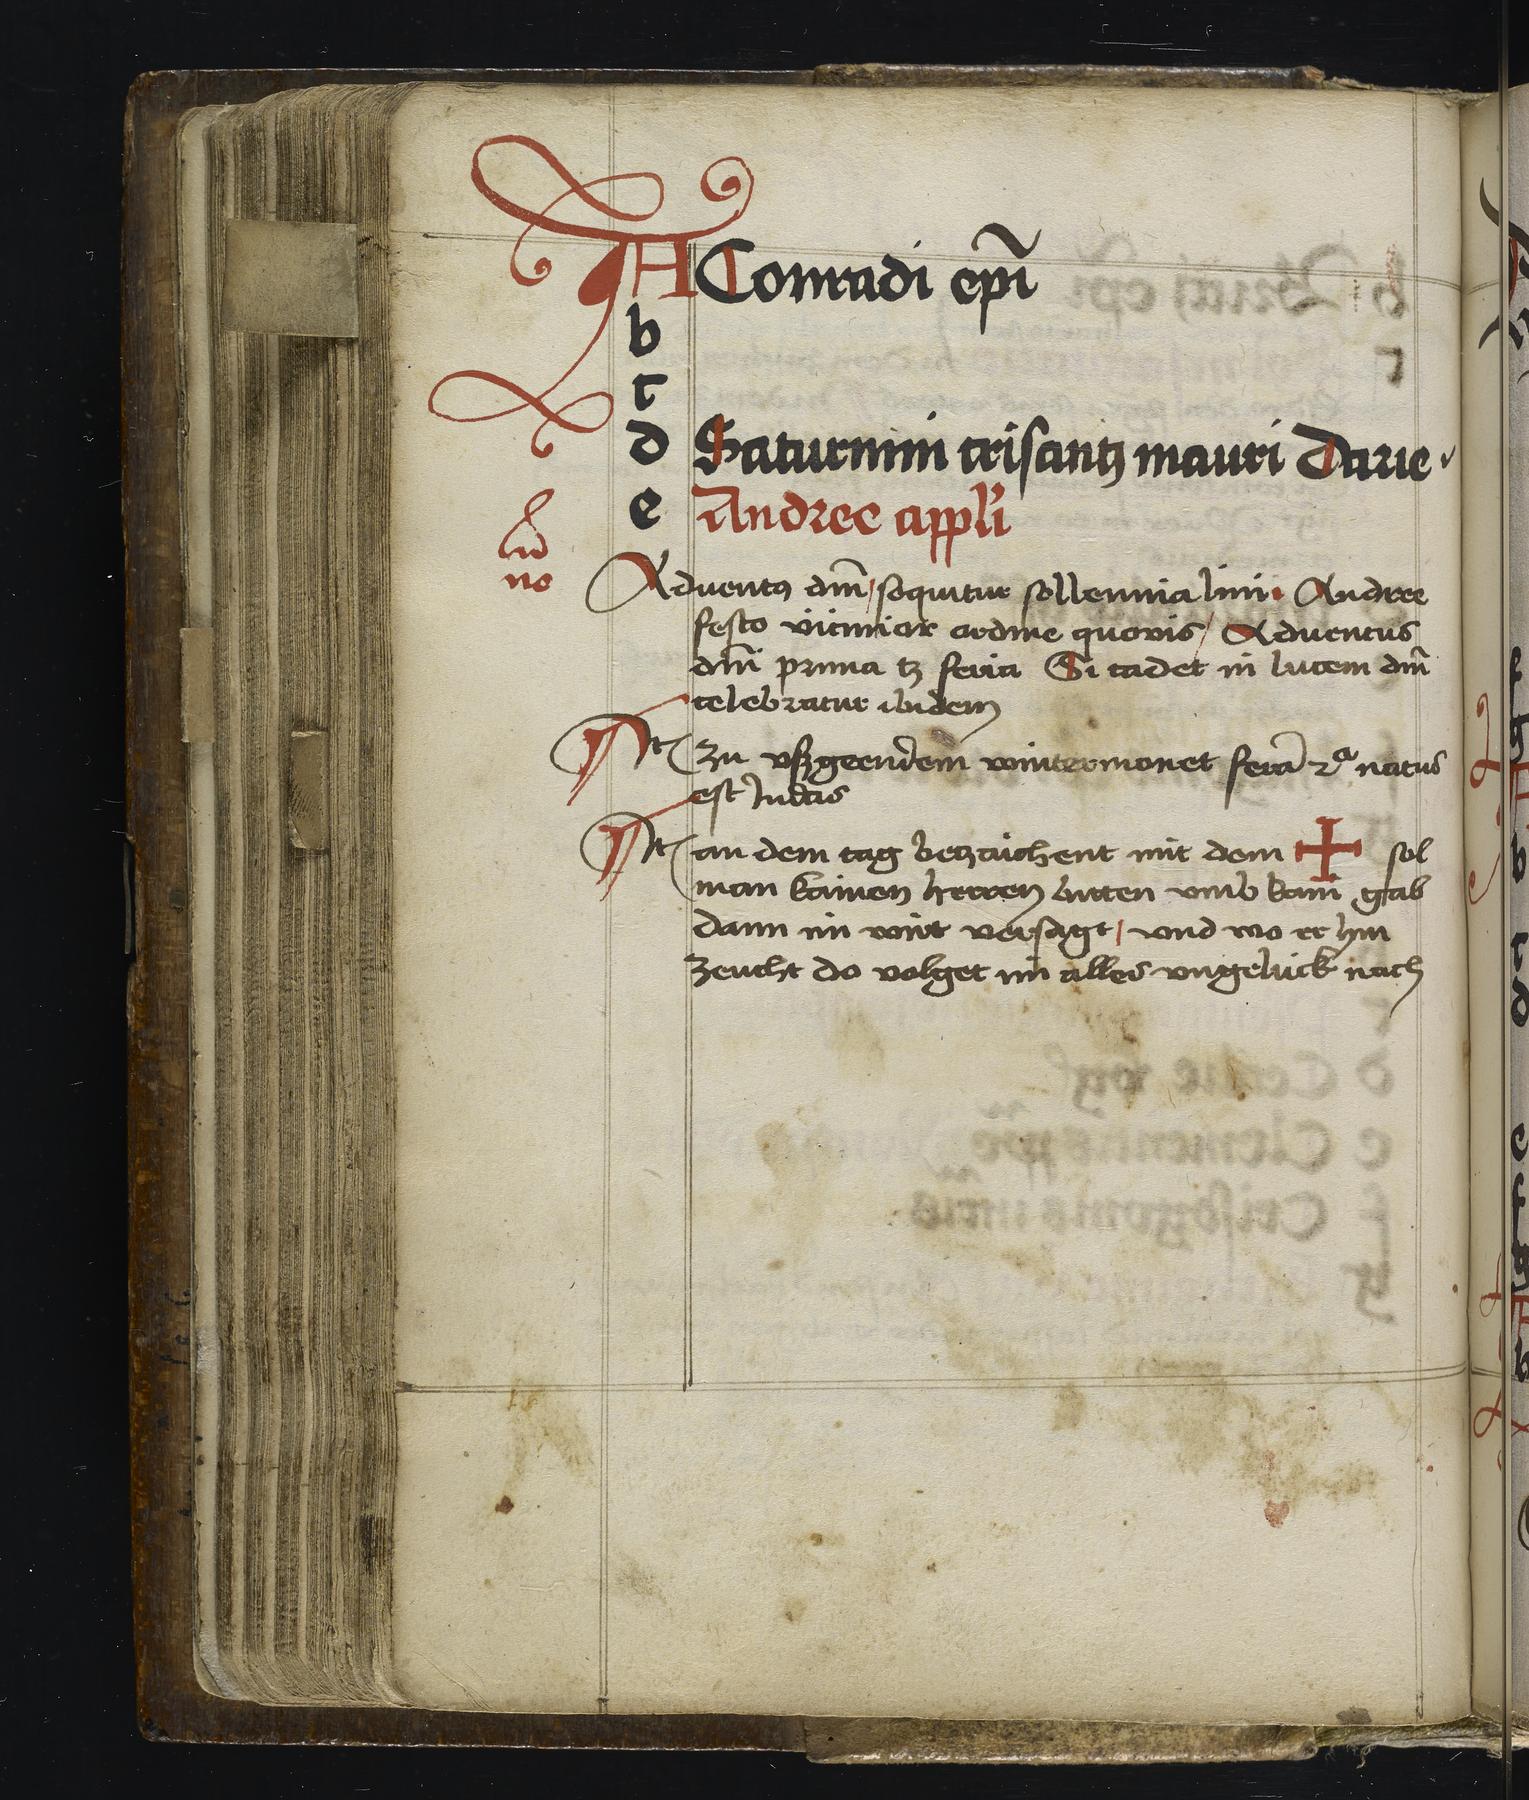 A Conradi epi
b
c
d Saturnini crisantz mauri Darie
e Andree appli
Adventus dni / sequitur sollennia lini Andree
festo vicinior ordine quovis / Adventus
dni prima tz feria Si cadet in lucem dni
celebratur ibidem
It zu ußgeendem wintermonet feria 2a natus
est Judas
It an dem tag betzaichent mit dem + sol
man kainen herren bitten umb kain gab
dann im wirt versagt / und wo er hin
zeucht do volget im alles ungelück nach